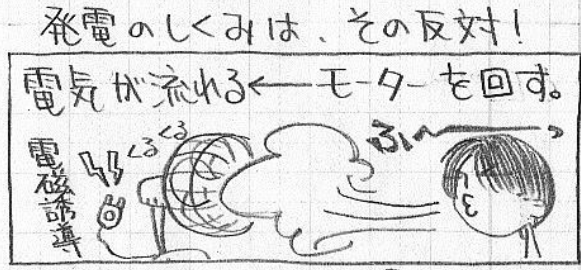 発電のしくみは、その反対!
電気が流れる←モーターを回す。
電磁誘導
くるくる
ふぅ〜